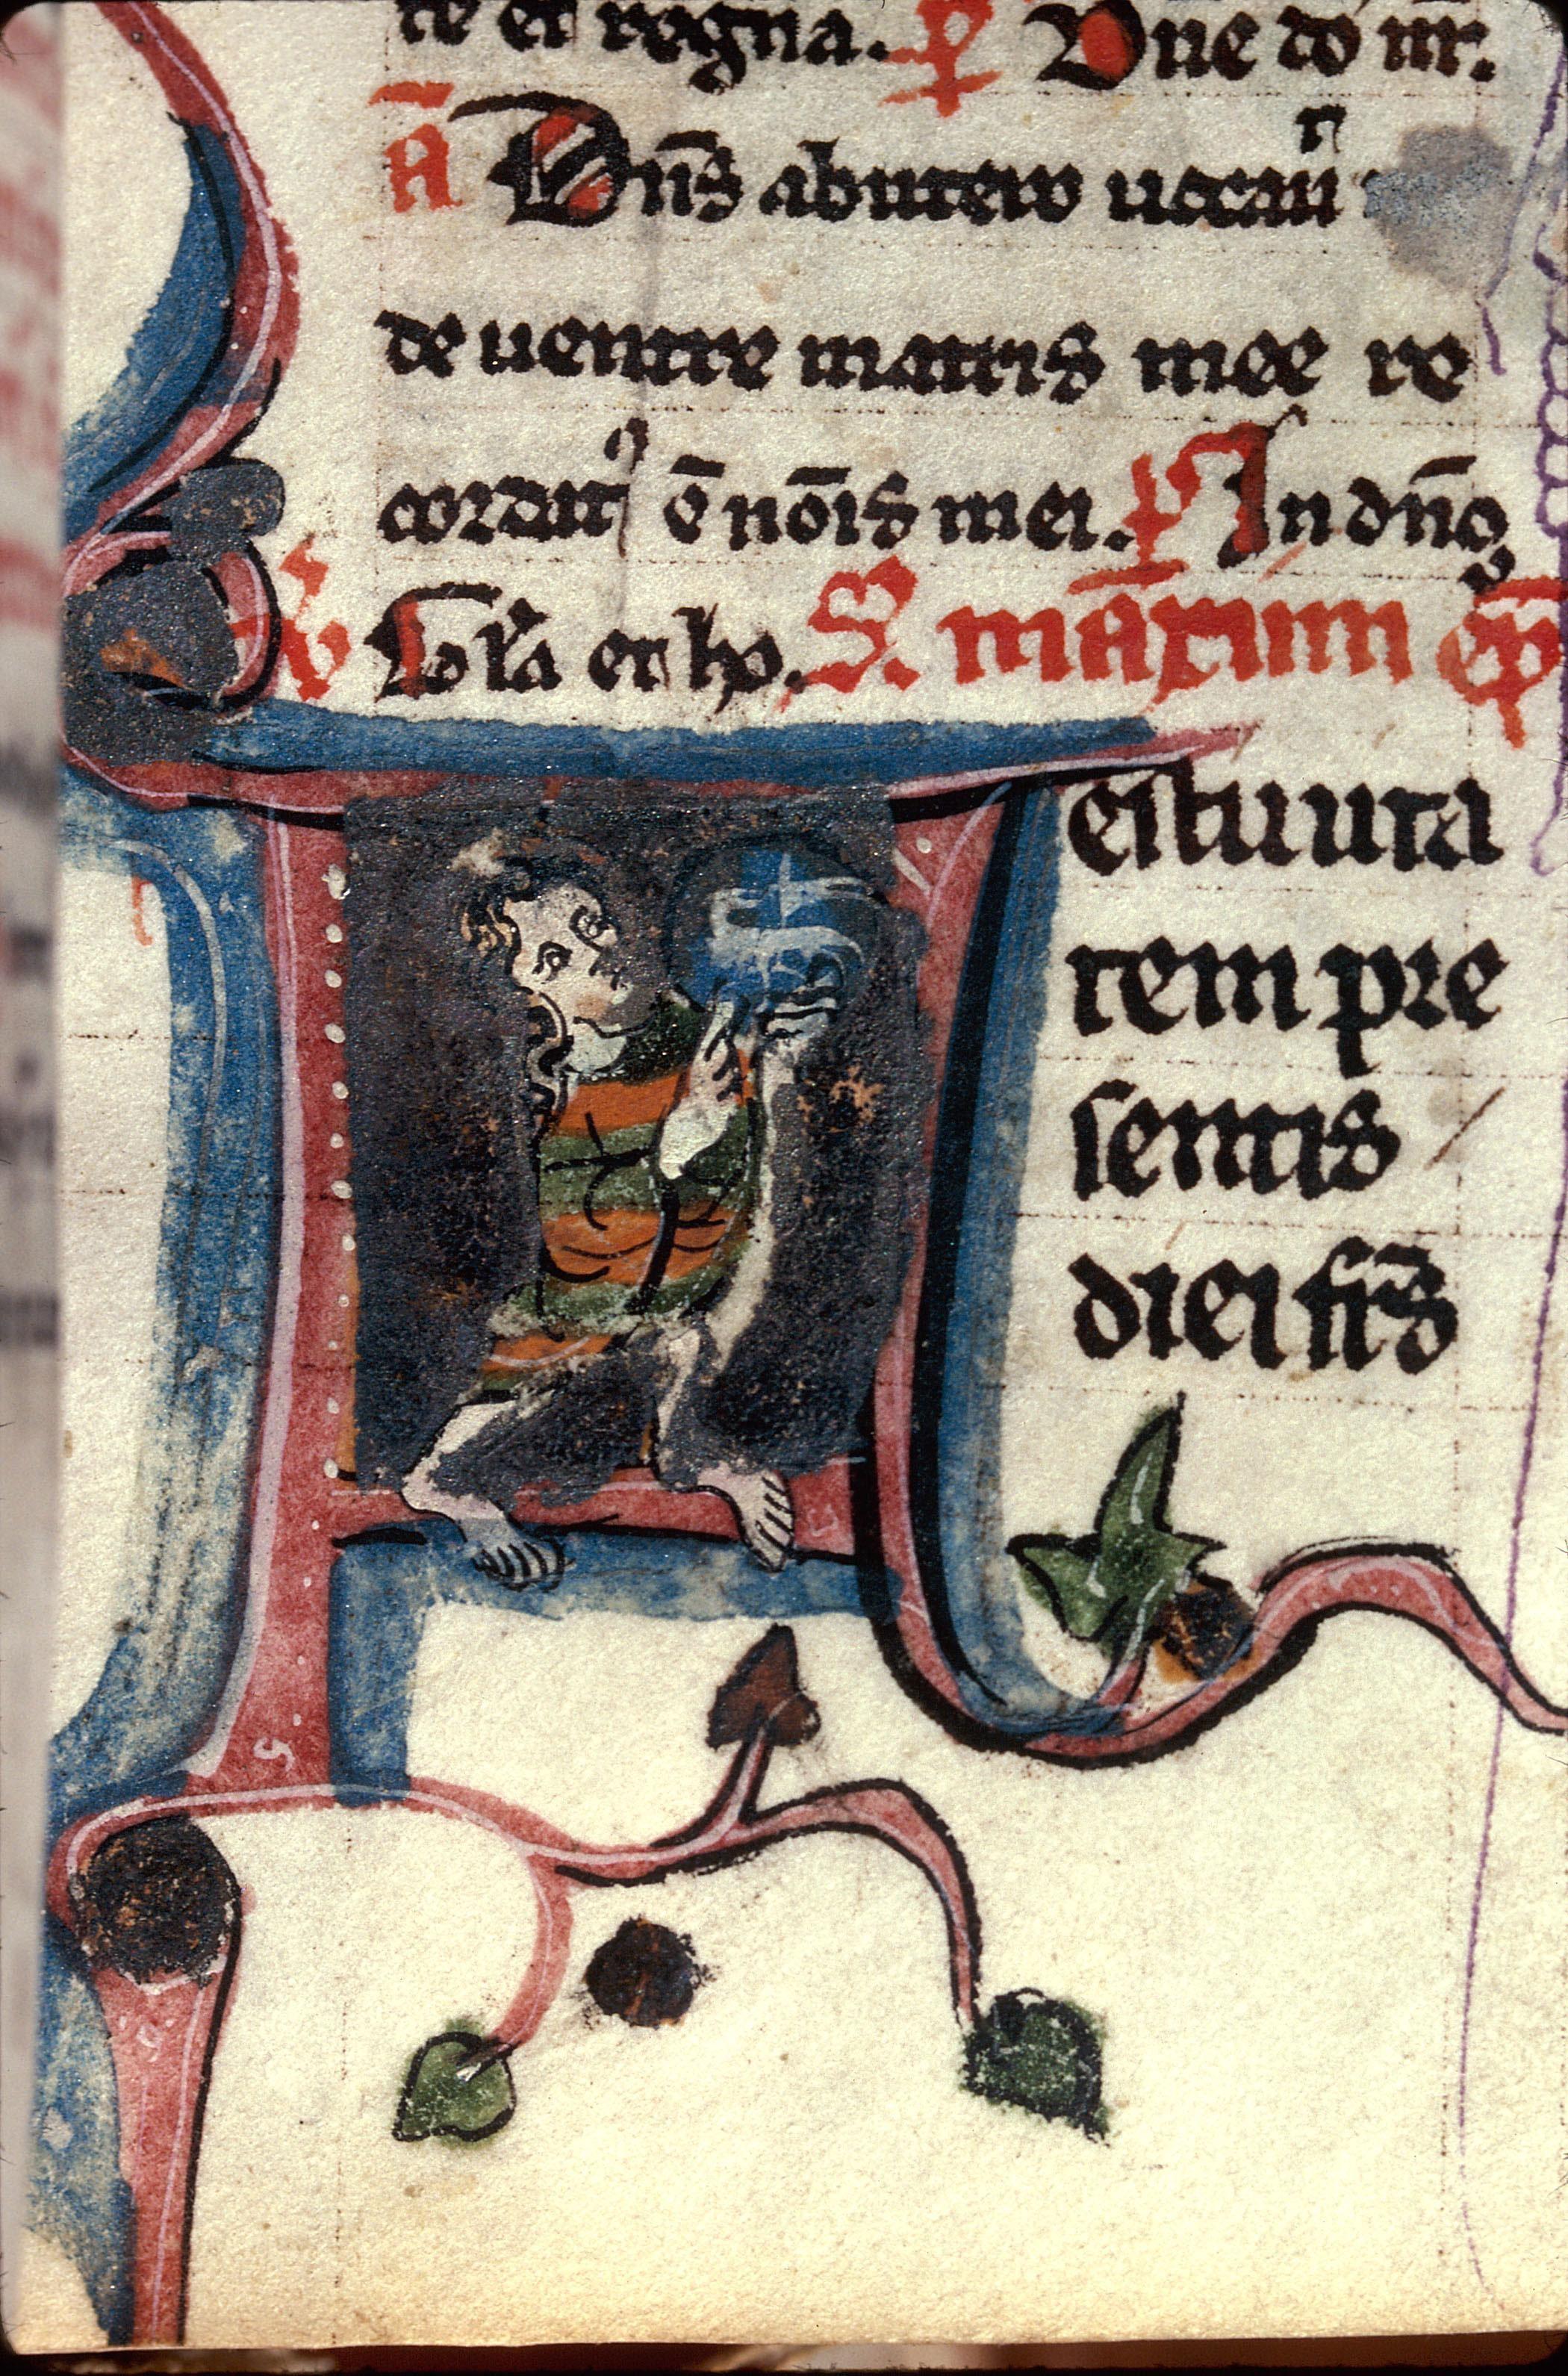 te et regna. p̄ Dn̄e do nr̄.
ā Dn̄s ab utero uocauit
de uentre matris mee re
cordatꝰ ē nōis mei. p̄ In dn̄o
v̄ Glo̅ria et ho. S. maximi ep̄i
estiuita
tem pre
sentis
diei frs̄